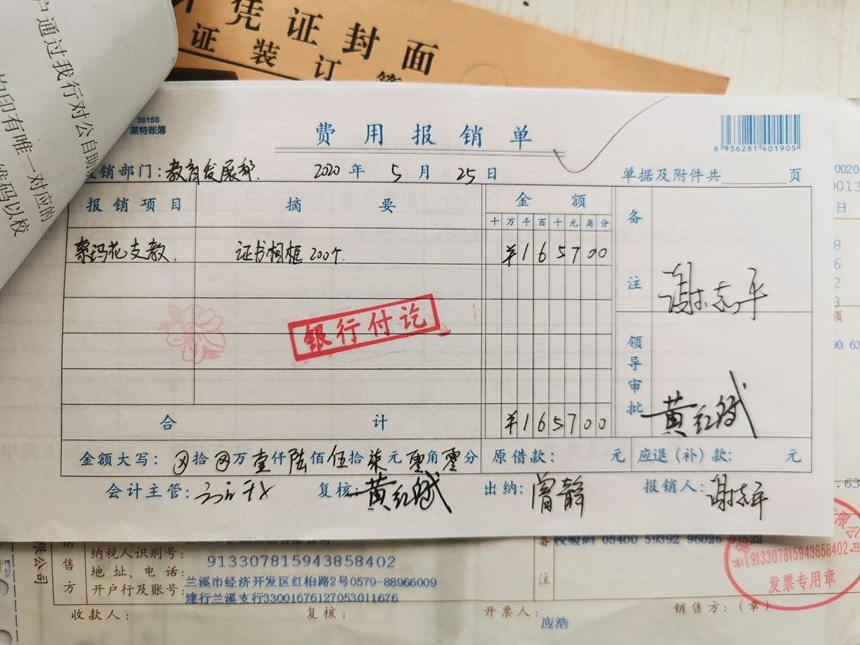 凭证封面
证装订
户通过我行对公自助
均印有唯一对应的
维码以校
30155
莱特账簿
费用报销单
6936281401905
报销部门:教育发展部. 2020年5月25日 单据及附件共 页
报销项目 摘要 金额 备注
十万千百十元角分
索玛花支教. 证书相框200个. ¥165700
谢志平
银行付讫
领导审批
黄红斌
合计 ¥165700
金额大写: ⊗拾⊗万壹仟陆佰伍拾柒元零角零分 原借款: 元 应退(补)款: 元
会计主管: 复核:黄红斌 出纳:曾静 报销人:谢志平
纳税人识别号: 913307815943858402
地址、电话: 兰溪市经济开发区红柏路2号0579-88966009
开户行及账号: 建行兰溪支行33001676127053011676
销售方
备注
校验码 05400 59392 96026
913307815943858402
发票专用章
收款人: 复核: 开票人: 应浩 销售方:(章)